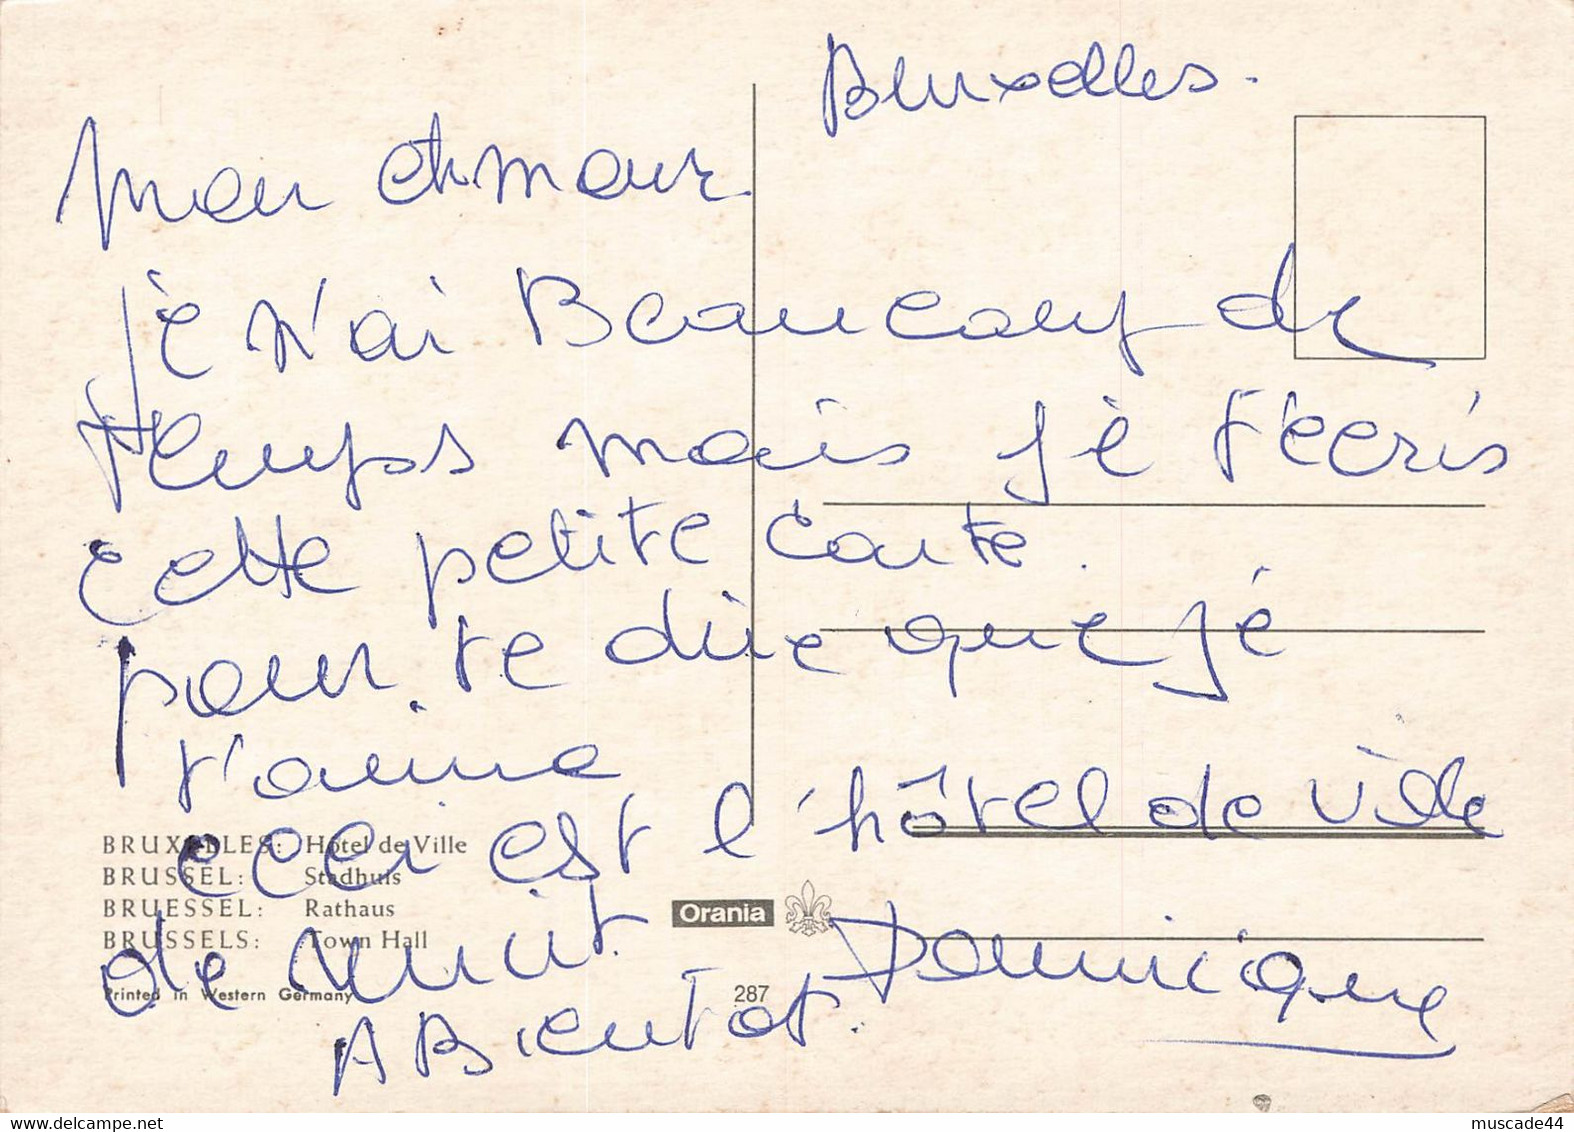 Bruxelles.
Mon Amour
je n'ai Beaucoup de
temps mais je t'ecris
cette petite carte.
pour te dire que je
t'aime
ceci est l'hôtel de ville
de nuit.
A Bientot. Dominique
BRUXELLES: Hôtel de Ville
BRUSSEL: Stadhuis
BRUESSEL: Rathaus
BRUSSELS: Town Hall
Printed in Western Germany
Orania
287
muscade44